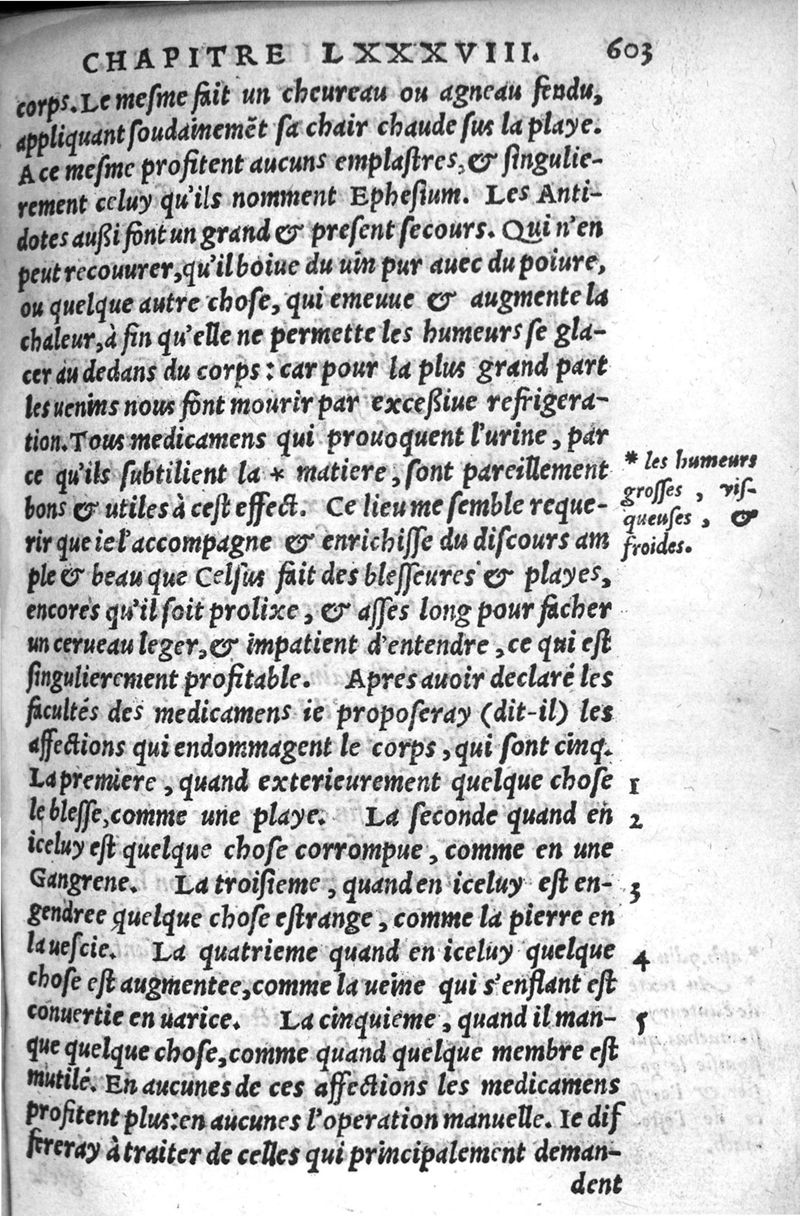 CHAPITRE LXXXVIII. 603
corps. Le meſme fait un cheureau ou agneau fendu,
appliquant ſoudainemẽt ſa chair chaude ſus la playe.
A ce meſme profitent aucuns emplaſtres, & ſingulie-
rement celuy qu'ils nomment Epheſium. Les Anti-
dotes außi font un grand & preſent ſecours. Qui n'en
peut recouurer, qu'il boiue du uin pur auec du poiure,
ou quelque autre choſe, qui emeuue & augmente la
chaleur, à fin qu'elle ne permette les humeurs ſe gla-
cer au dedans du corps : car pour la plus grand part
les uenins nous font mourir par exceßiue refrigera-
tion. Tous medicamens qui prouoquent l'urine, par
ce qu'ils ſubtilient la * matiere, ſont pareillement
bons & utiles à ceſt effect. Ce lieu me ſemble reque-
rir que ie l'accompagne & enrichiſſe du diſcours am
ple & beau que Celſus fait des bleſſeures & playes,
encores qu'il ſoit prolixe, & aſſes long pour facher
un cerueau leger, & impatient d'entendre, ce qui eſt
ſingulierement profitable. Apres auoir declaré les
facultés des medicamens ie propoſeray (dit-il) les
affections qui endommagent le corps, qui ſont cinq.
La premiere, quand exterieurement quelque choſe
le bleſſe, comme une playe. La ſeconde quand en
iceluy eſt quelque choſe corrompue, comme en une
Gangrene. La troiſieme, quand en iceluy eſt en-
gendree quelque choſe eſtrange, comme la pierre en
la ueſcie. La quatrieme quand en iceluy quelque
choſe eſt augmentee, comme la ueine qui s'enflant eſt
conuertie en uarice. La cinquieme, quand il man-
que quelque choſe, comme quand quelque membre eſt
mutilé. En aucunes de ces affections les medicamens
profitent plus: en aucunes l'operation manuelle. Ie dif
fereray à traiter de celles qui principalement deman-
dent
* les humeurs
groſſes, viſ-
queuſes, &
froides.
1
2
3
4
5